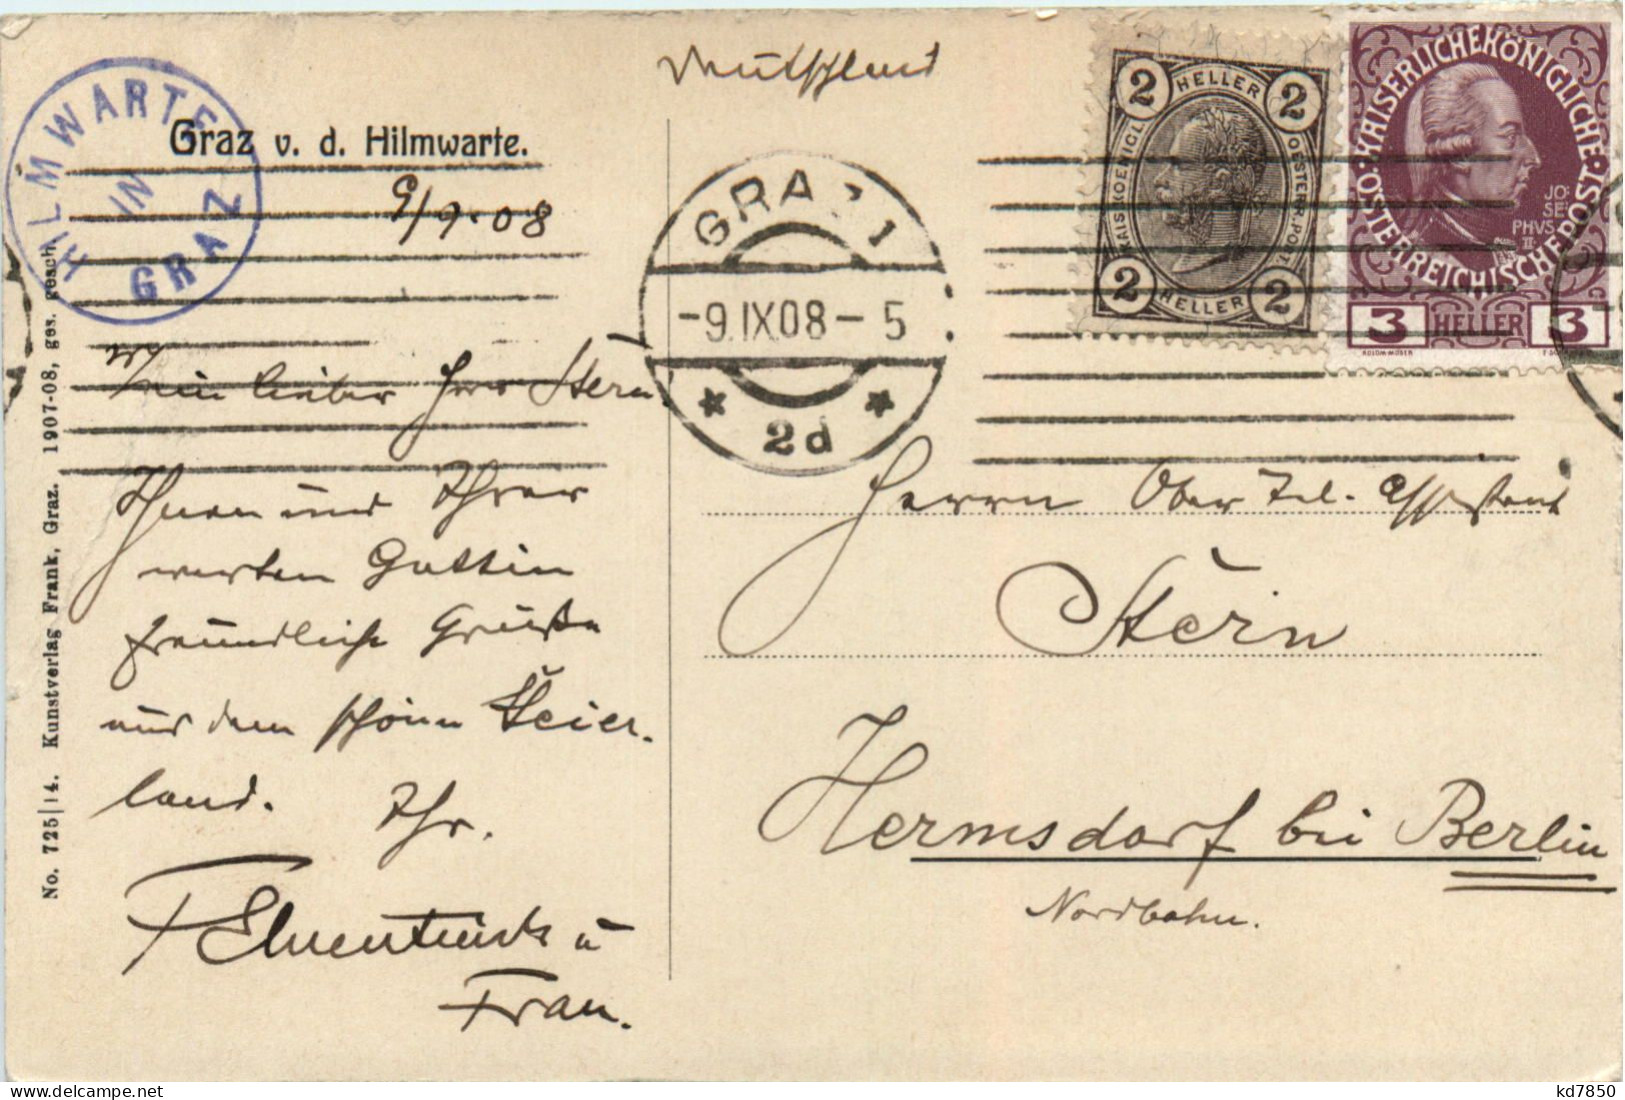 Deutschland
HILMWARTE
IN
GRAZ
Graz v. d. Hilmwarte.
9/9.08
GRAZ 1
-9.IX08-5
* 2d *
2 HELLER 2
KAIS.KOENIGL. OESTERR.POST
2 HELLER 2
KAISERLICHEKÖNIGLICHE
ÖSTERREICHISCHEPOST
JO=
SE=
PHVS
II=
3 HELLER 3
KOLOM·MOSER
No. 725|14. Kunstverlag Frank, Graz. 1907-08, ges. gesch.
Mein lieber Herr Stern.
Ihnen und Ihrer
werten Gattin
freundliche Grüße
aus dem schönen Steier-
land. Ihr.
u
Frau.
Herrn Ober Tel. Assistent
Stern
Hermsdorf bei Berlin
Nordbahn.
kd7850